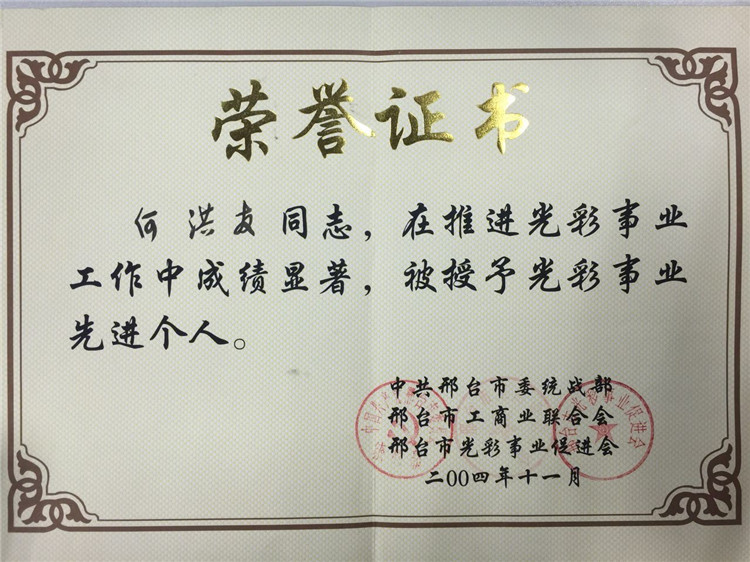 荣誉证书
何洪友同志，在推进光彩事业
工作中成绩显著，被授予光彩事业
先进个人。
中共邢台市委统战部
邢台市工商业联合会
邢台市光彩事业促进会
二00四年十一月